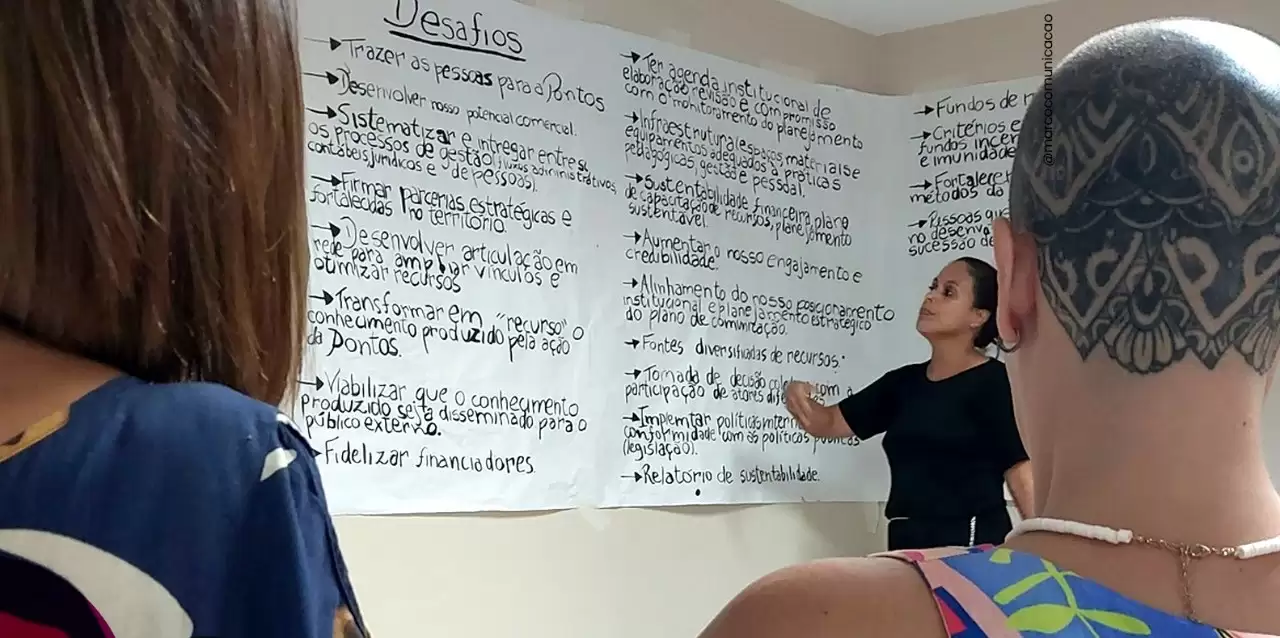 Desafios
→ Trazer as pessoas para a Pontos
→ Desenvolver nosso potencial comercial.
→ Sistematizar e intregar entre si
os processos de gestão (fluxos administrativos,
contábeis, jurídicos e de pessoas).
→ Firmar parcerias estratégicas e
fortalecidas no território.
→ Desenvolver articulação em
rede para ampliar vínculos e
otimizar recursos
→ Transformar em "recurso" o
conhecimento produzido pela ação
da Pontos.
→ Viabilizar que o conhecimento
produzido seja disseminado para o
público externo.
→ Fidelizar financiadores.
→ Ter agenda institucional de
elaboração revisão e compromisso
com o monitoramento do planejamento
→ Infraestrutura (espaços, materiais e
equipamentos adequados a práticas
pedagógicas, gestão e pessoal.
→ Sustentabilidade financeira, plano
de capacitação de recursos, planejamento
sustentável.
→ Aumentar o nosso engajamento e
credibilidade.
→ Alinhamento do nosso posicionamento
institucional e planejamento estratégico
do plano de comunicação.
→ Fontes diversificadas de recursos.
→ Tomada de decisão com a
participação de atores
→ Implemtar políticas
conformidade com as políticas públicas
(legislação).
→ Relatório de sustentabilidade.
→ Fundos de
→ Critérios e
fundos
e imunidade
→ Fortalecer
métodos da
→ Pessoas que
no
sucessão de
@marcocomunicacao